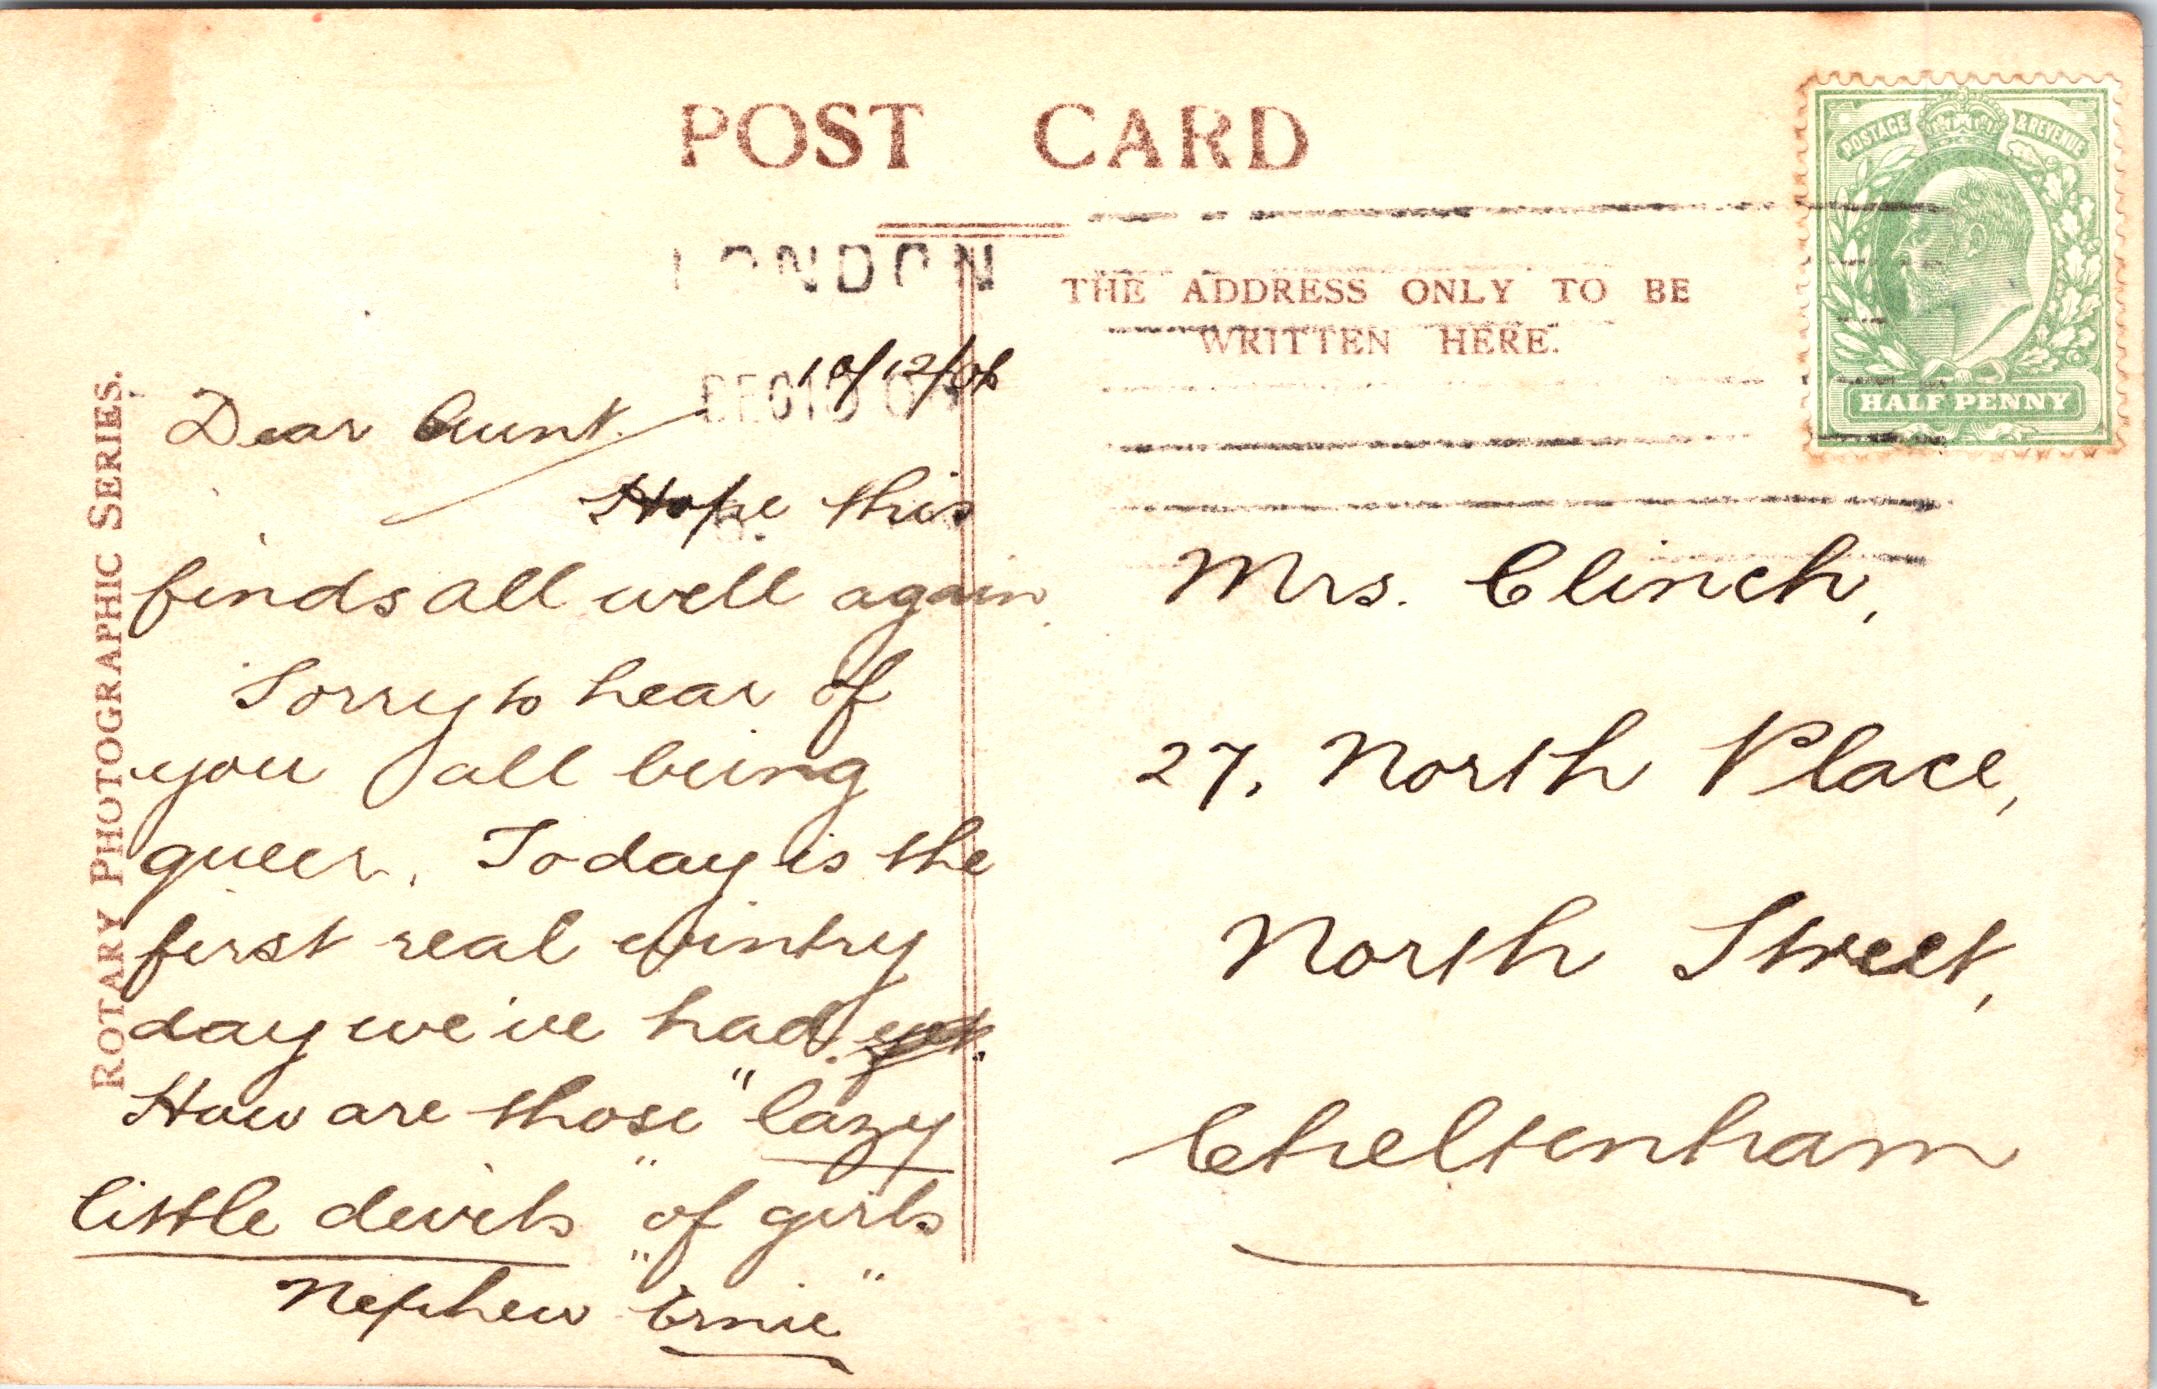 POST CARD
POSTAGE & REVENUE
HALF PENNY
LONDON
THE ADDRESS ONLY TO BE
WRITTEN HERE.
DEC 10
10/12/06
ROTARY PHOTOGRAPHIC SERIES.
Dear Aunt.
Hope this
finds all well again.
Sorry to hear of
you all being
queer. Today is the
first real wintry
day we've had.
How are those "lazy
little devils" of girls
Nephew "Ernie"
Mrs. Clinch,
27, North Place,
North Street,
Cheltenham